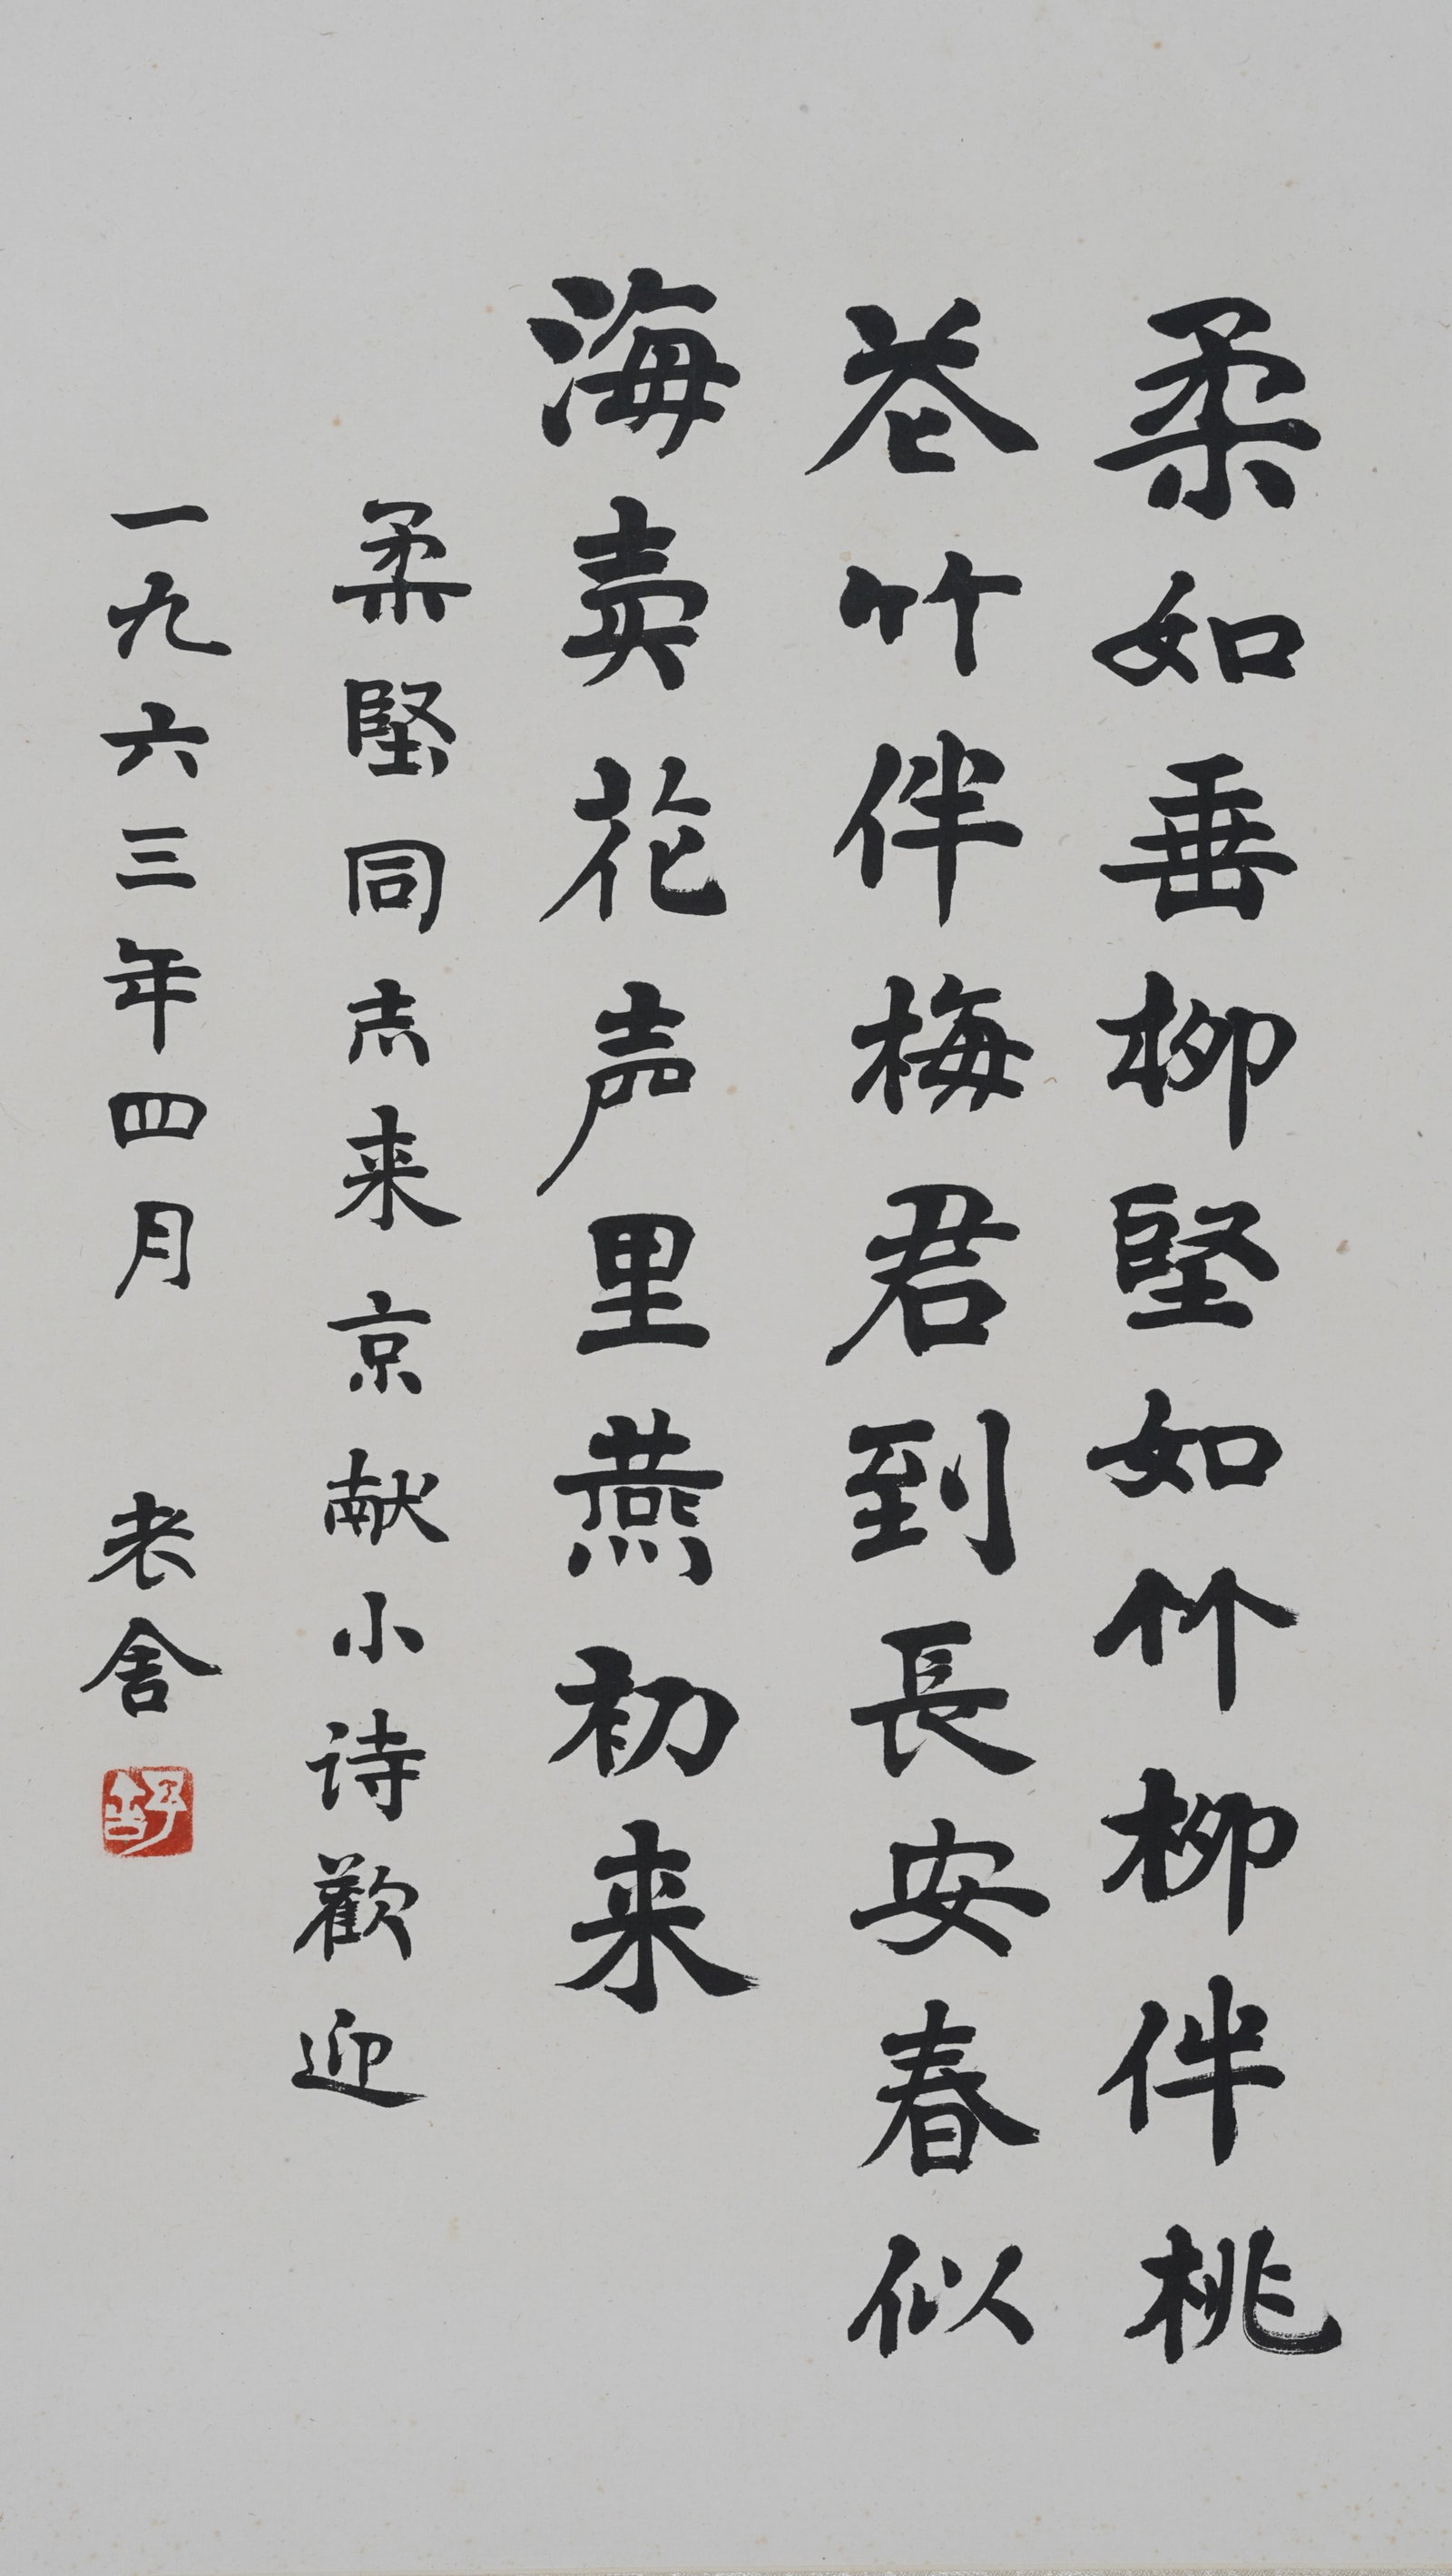 柔如垂柳堅如竹柳伴桃
花竹伴梅君到長安春似
海卖花声里燕初来
柔堅同志来京献小诗歡迎
一九六三年四月 老舍
舍予